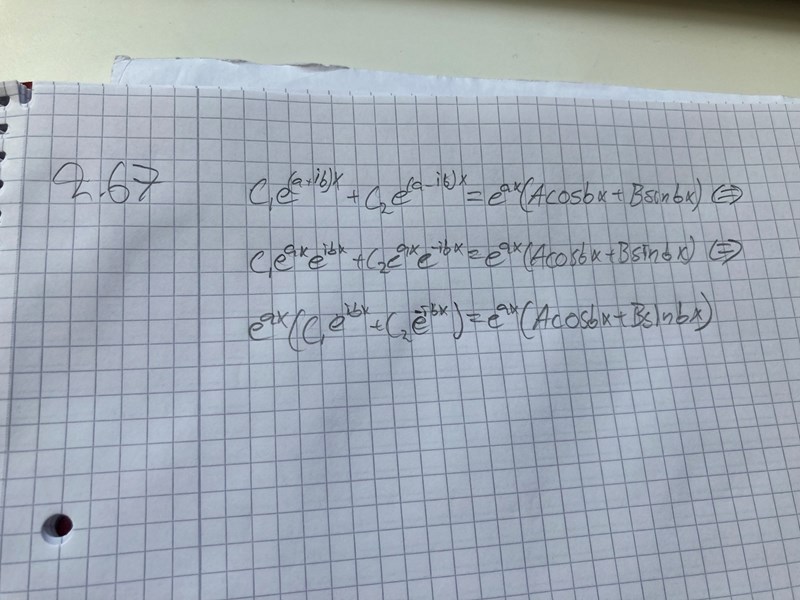 2.67
C₁e^(a+ib)x + C₂e^(a-ib)x = e^ax(Acosbx+Bsinbx) ⇔
C₁e^ax e^ibx + C₂e^ax e^-ibx = e^ax(Acosbx+Bsinbx) ⇔
e^ax(C₁e^ibx + C₂e^-ibx) = e^ax(Acosbx+Bsinbx)